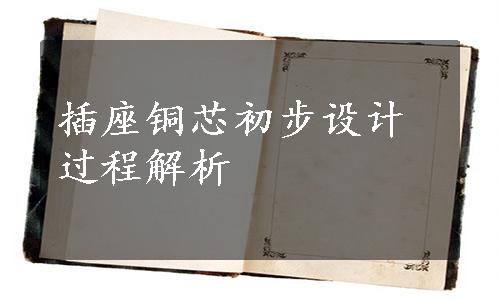 插座铜芯初步设计
过程解析